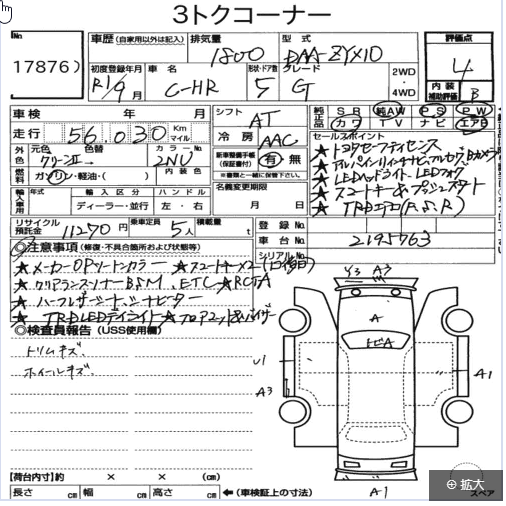 3トクコーナー
No. 17876)
車歴 (自家用以外は記入) 排気量 1800 型式 DAA-ZYX10
評価点 4
初度登録年月 R1/9月 車名 C-HR 形状・ドア数 5 グレード G 2WD ・ 4WD
内装補助評価 B
車検 年 月 シフト AT 純正品 SR 純AW PS PW
走行 56,030 Km マイル 冷房 AAC カワ TV ナビ エアB
外色 元色 色替 カラーNo. 2NU
セールスポイント
新車整備手帳 (保証書付) 有・無
※書類と一緒に保管下さい。
★トヨタセーフティセンス
燃料 ガソリン・軽油・( ) 内装色
名義変更期限 月 日
★LEDヘッドライト LEDフォグ
★スマートキー&プッシュスタート
★TRDエアロ(F,S,R)
輸入車用 年式 輸入区分 ハンドル
ディーラー・並行 左・右
リサイクル預託金 11270円 乗車定員 5人 積載量 t
登録No.
車台No. 2195763
シリアルNo.
◎注意事項 (修復・不具合箇所および状態等)
★メーカーOPツートンカラー ★スマートキー×2(1コ後日)
★クリアランスソナーBSM、ETC★RCTA
★ハーフレザーシート、シートヒーター
★TRDLEDデイライト★フロアマット&バイザー
◎検査員報告 (USS使用欄)
トリムキズ、
ホイールキズ、
Y3 A3
A
トビA
U1
A3
A1
A1
【荷台内寸】約 × × (cm)
長さ cm 幅 cm 高さ cm ←(車検証上の寸法)
スペア
拡大